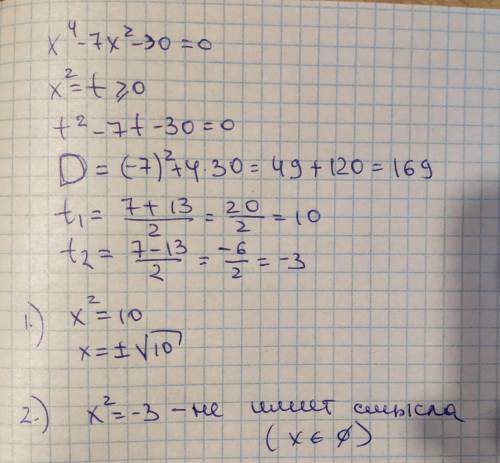 x⁴-7x²-30=0
x²=t⩾0
t²-7t-30=0
D=(-7)²+4·30=49+120=169
t₁=(7+13)/2=20/2=10
t₂=(7-13)/2=-6/2=-3
1.) x²=10
x=±√10
2.) x²=-3 - не имеет смысла
(x∈∅)